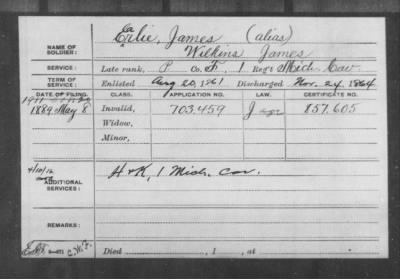 Erlie, James (alias)
NAME OF SOLDIER: Wilkins James
SERVICE: Late rank, P Co. F, 1 Reg't Mich. Cav.
TERM OF SERVICE: Enlisted Aug 20, 1861 Discharged Nov. 24, 1864
DATE OF FILING. CLASS. APPLICATION NO. LAW. CERTIFICATE NO.
1889 May 8 Invalid, 703.459 J 857.605
Widow,
Minor,
4/10/12
ADDITIONAL SERVICES: H & K, 1 Mich. Cav.
REMARKS:
Died , 1 , at